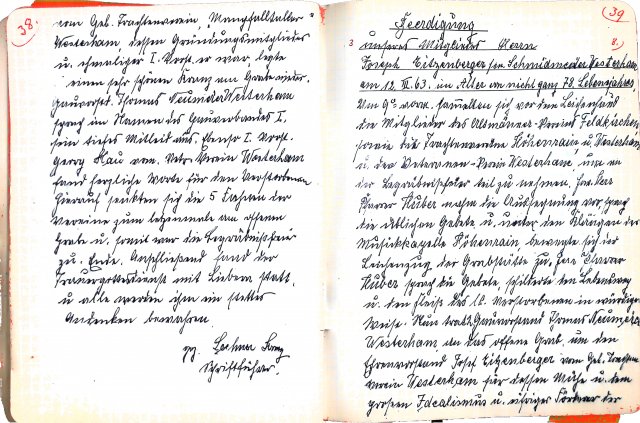 38.
vom Geb. Trachtenverein, "Mangfalltaler"
Westerham, dessen Gründungsmitglied
u. ehemaliger I. Vorst. er war, legte
einen sehr schönen Kranz am Grabe nieder.
Gauvorst. Thomas Neumeier Westerham
sprach im Namen des Gauverbandes I,
sein tiefes Mitleid aus. Ebenso I. Vorst.
Georg Hau vom Vetr. Verein Westerham
fand herzliche Worte für den Verstorbenen
hierauf senkten sich die 5 Fahnen der
Vereine zum letzenmale am offenen
Grabe u. somit war die Begräbnisfeier
zu Ende. Anschließend fand der
Trauergottesdienst mit Libera statt.
u. alle werden ihm ein stetes
Andenken bewahren.
gz.
Schriftführer.
39
Beerdigung
3
8.
unseres Mitgliedes Herrn
Joseph Eitzenberger sen Schmidmeister Westerham
am 12. 63. im Alter von nicht ganz 78. Lebensjahres
Um 9° vorm. samelten sich vor dem Leichenhaus
die Mitglieder des Altmänner-Vereins Feldkirchen
sowie die Trachtenvereine Höhenrain, u. Westerham
u. der Veteranen-Verein Westerham, um an
der Begräbnisfeier teil zu nehmen. Hw. Herr
Pfarrer Huber nahm die Aussegnung vor, sprach
die üblichen Gebete, u. unter den Klängen der
Musikkapelle Höhenrain bewegte sich der
Leichenzug der Grabstätte zu. Hw. Pfarrer
Huber sprach die Gebete, schilderte den Lebensweg
u. den Fleiß des lb. Verstorbenen in würdiger
Weise. Nun trat h. Gauvorstand Thomas Neumeier
Westerham an das offene Grab, um den
Ehrenvorstand Josef Eitzenberger vom Geb. Trachten
verein Westerham für dessen Mühe u. dem
großen Idealismus u. eifriger Förderer der